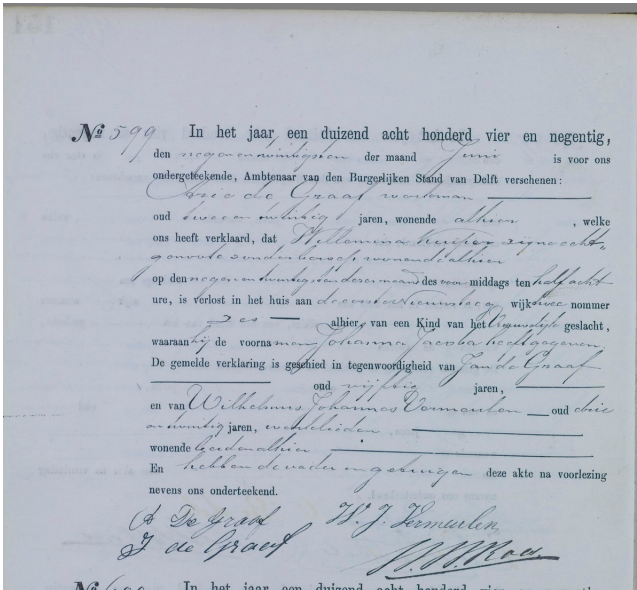 No 599 In het jaar een duizend acht honderd vier en negentig,
den negenentwintigsten der maand Juni is voor ons
ondergeteekende, Ambtenaar van den Burgerlijken Stand van Delft verschenen:
Arie de Graaf werkman
oud twee en twintig jaren, wonende alhier, welke
ons heeft verklaard, dat Willemina Kuiper zijne echt=
genoote zonder beroep wonende alhier
op den negen en twintigsten dezer maand des voor middags ten half acht
ure, is verlost in het huis aan de wijk twee nommer
zes alhier, van een Kind van het Vrouwelijk geslacht,
waaraan hij de voornamen Johanna Jacoba heeft gegeven.
De gemelde verklaring is geschied in tegenwoordigheid van Jan de Graaf
oud vijftig jaren,
en van Wilhelmus Johannes Vermeulen oud drie
en twintig jaren, werklieden
wonende beiden alhier
En hebben de vader en getuigen deze akte na voorlezing
nevens ons onderteekend.
A De Graaf W. J. Vermeulen
J de Graaf
No In het jaar een duizend acht honderd vier en negentig